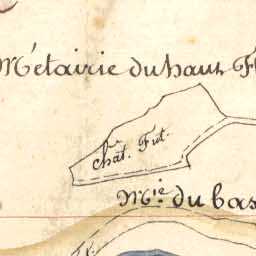 Métairie du haut F
chât. Fut.
Mie. du bas